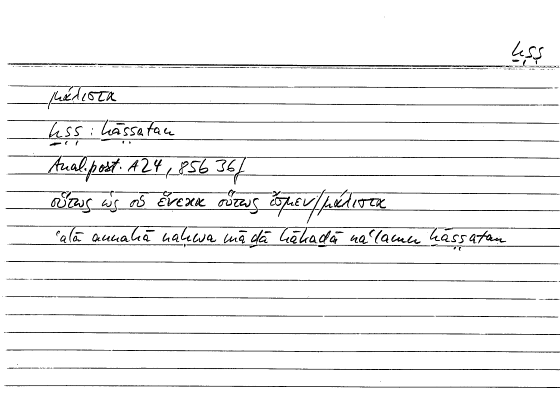 ẖṣṣ
μάλιστα
ẖṣṣ : ẖāṣṣatan
Anal.post. A24, 85b 36f
οὕτως ὡς οὗ ἕνεκα οὕτως ἴσμεν/μάλιστα
ʿalā annahā naḥwa māḏā hākaḏā naʿlamu ẖāṣṣatan